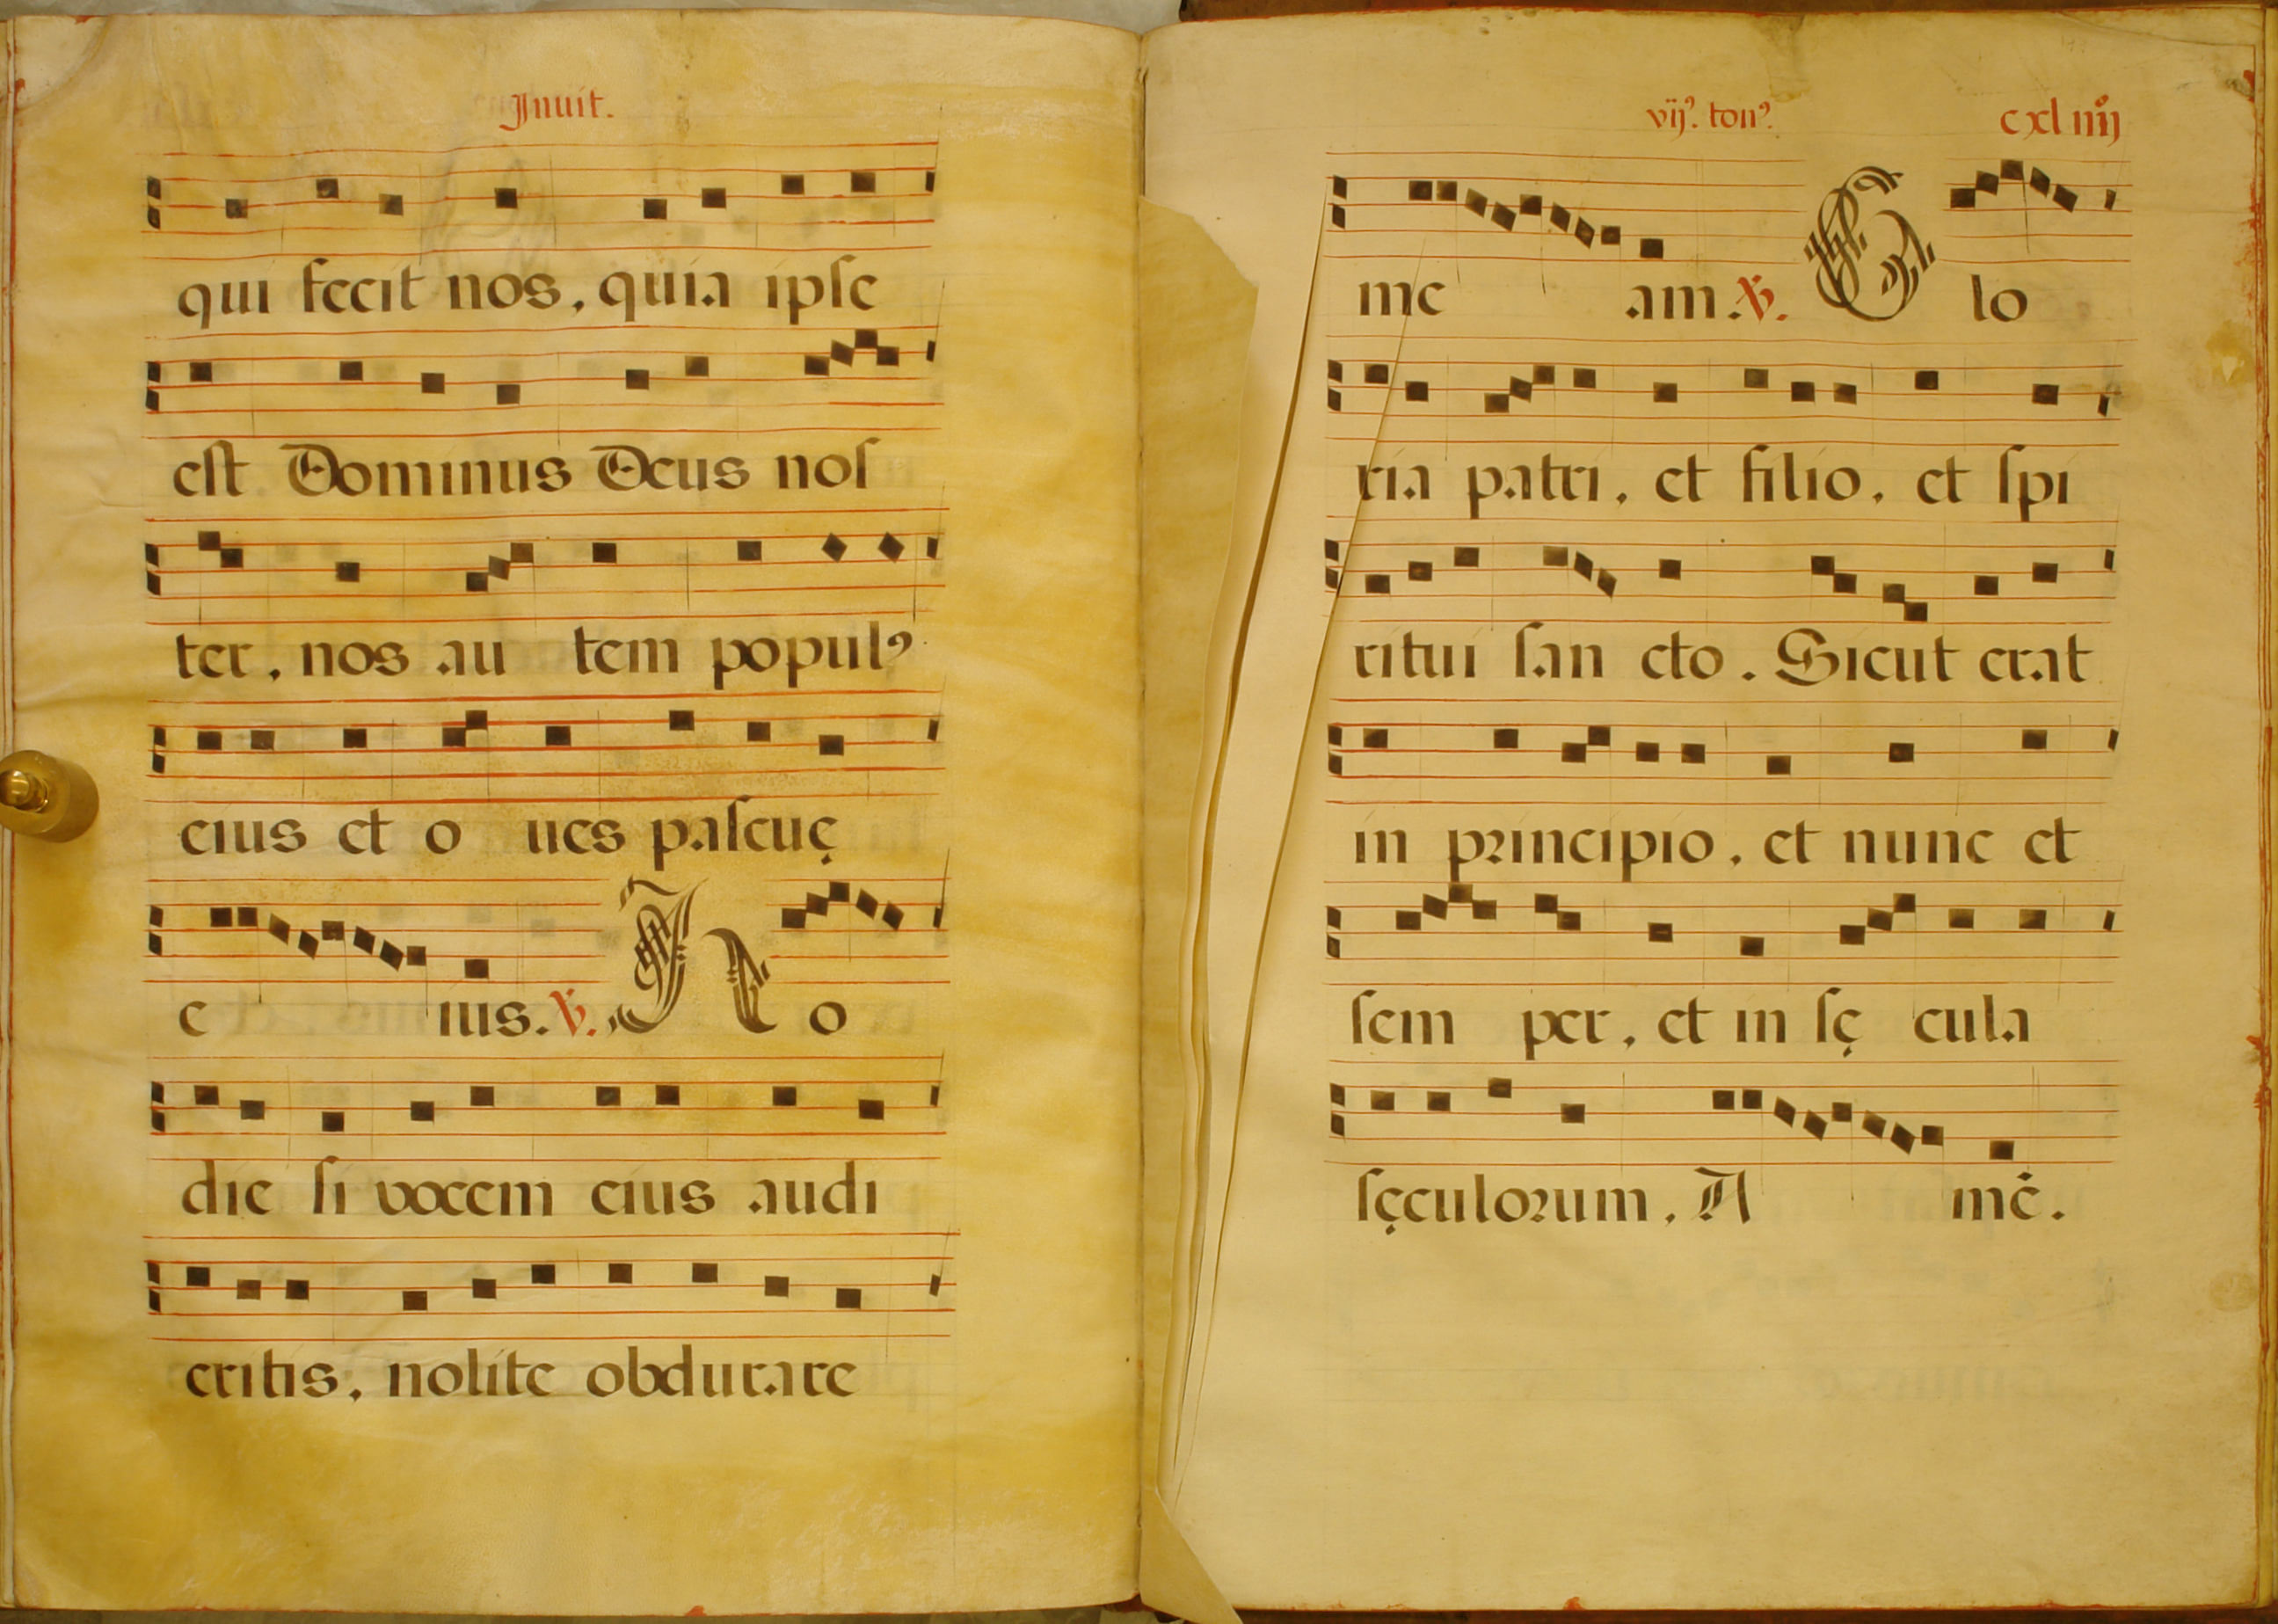 Inuit.
qui fecit nos, quia ipſe
eſt Dominus Deus noſ
ter, nos au tem populꝰ
eius et o ues paſcuę
e ius. ℣. HO o
die ſi vocem eius audi
eritis, nolite obdurare
vijꝰ. tonꝰ. cxl iiij
me am. ℣. G lo
ria patri, et filio, et ſpi
ritui ſan cto. Sicut erat
in prꝛincipio, et nunc et
ſem per, et in ſę cula
ſęculoꝛum, A mē.